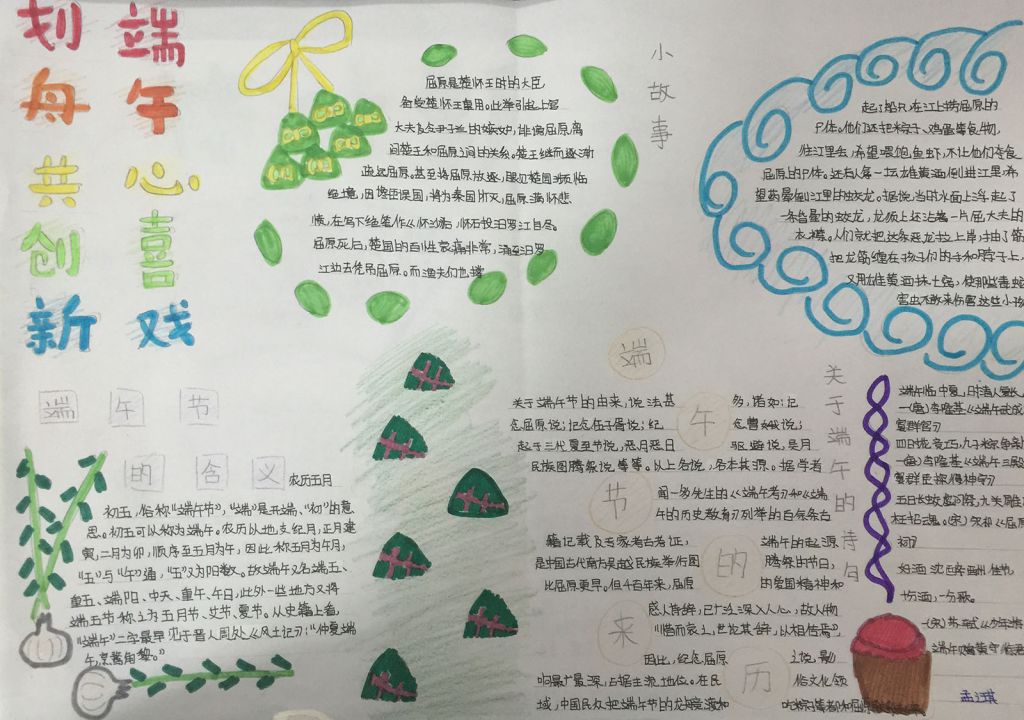 划舟共创新
端午心喜戏
小故事
屈原是楚怀王时的大臣
备受楚怀王重用。此举引起上官
大夫及令尹子兰的嫉妒,排挤屈原,离
间楚王和屈原之间的关系。楚王继而逐渐
疏远屈原,甚至将屈原放逐,眼见楚国濒临
绝境,因馋臣误国,将为秦国所灭,屈原满怀悲
愤,在写下绝笔作《怀沙》后,怀石投汨罗江自尽。
屈原死后,楚国的百性哀痛非常,涌至汨罗
江边去凭吊屈原。而渔夫们也撑
起了船只,在江上捞屈原的
尸体。他们还把粽子、鸡蛋等食物,
往江里丢,希望喂饱鱼虾,不让他们夺食
屈原上的尸体。还有人拿一坛雄黄酒倒进江里,希
望药晕倒江里的蛟龙。据说,当时水面上浮起了
一条昏晕的蛟龙,龙须上还沾着一片屈大夫的
衣襟。人们就把这条恶龙拉上岸,抽了筋
把龙筋缠在孩子们的手和脖子上,
又用雄黄酒抹七窍,使那些毒蛇
害虫不敢来伤害这些小孩
端午节
的含义
农历五月
初五,俗称"端午节","端"是开端,"初"的意
思。初五可以称为端午。农历以地支纪月,正月建
寅,二月为卯,顺序至五月为午,因此称五月为午月,
"五"与"午"通,"五"又为阳数。故端午又名端五、
重五、端阳、中天、重午、午日,此外一些地方又将
端五节称之为五月节、艾节、夏节。从史籍上看,
"端午"二字最早见于晋人周处《风土记》:"仲夏端
午,烹鹜角黍。"
端午节的来历
关于端午节的由来,说法甚多,诸如:纪
念屈原说;纪念伍子胥说;纪念曹娥说;
起于三代夏至节说,恶月恶日驱避说,吴月
民族图腾祭说等等。以上各说,各本其源。据学者
闻一多先生的《端午考》和《端
午的历史教育》列举的百余条古
籍记载及专家考古考证,端午的起源
是中国古代南方吴越民族举行图腾祭的节日,
比屈原更早。但千百年来,屈原的爱国精神和
感人诗辞,已广泛深入人心,故人们
"惜而哀之,世论其辞,以相传焉",
因此,纪念屈原之说,影
响最广最深,占据主流地位。在民俗文化领
域,中国民众把端午节的龙舟竞渡和
关于端午的诗句
端午临中夏,日清人复长
(唐)李隆基《端午
四时
(唐)李隆基《端午三殿